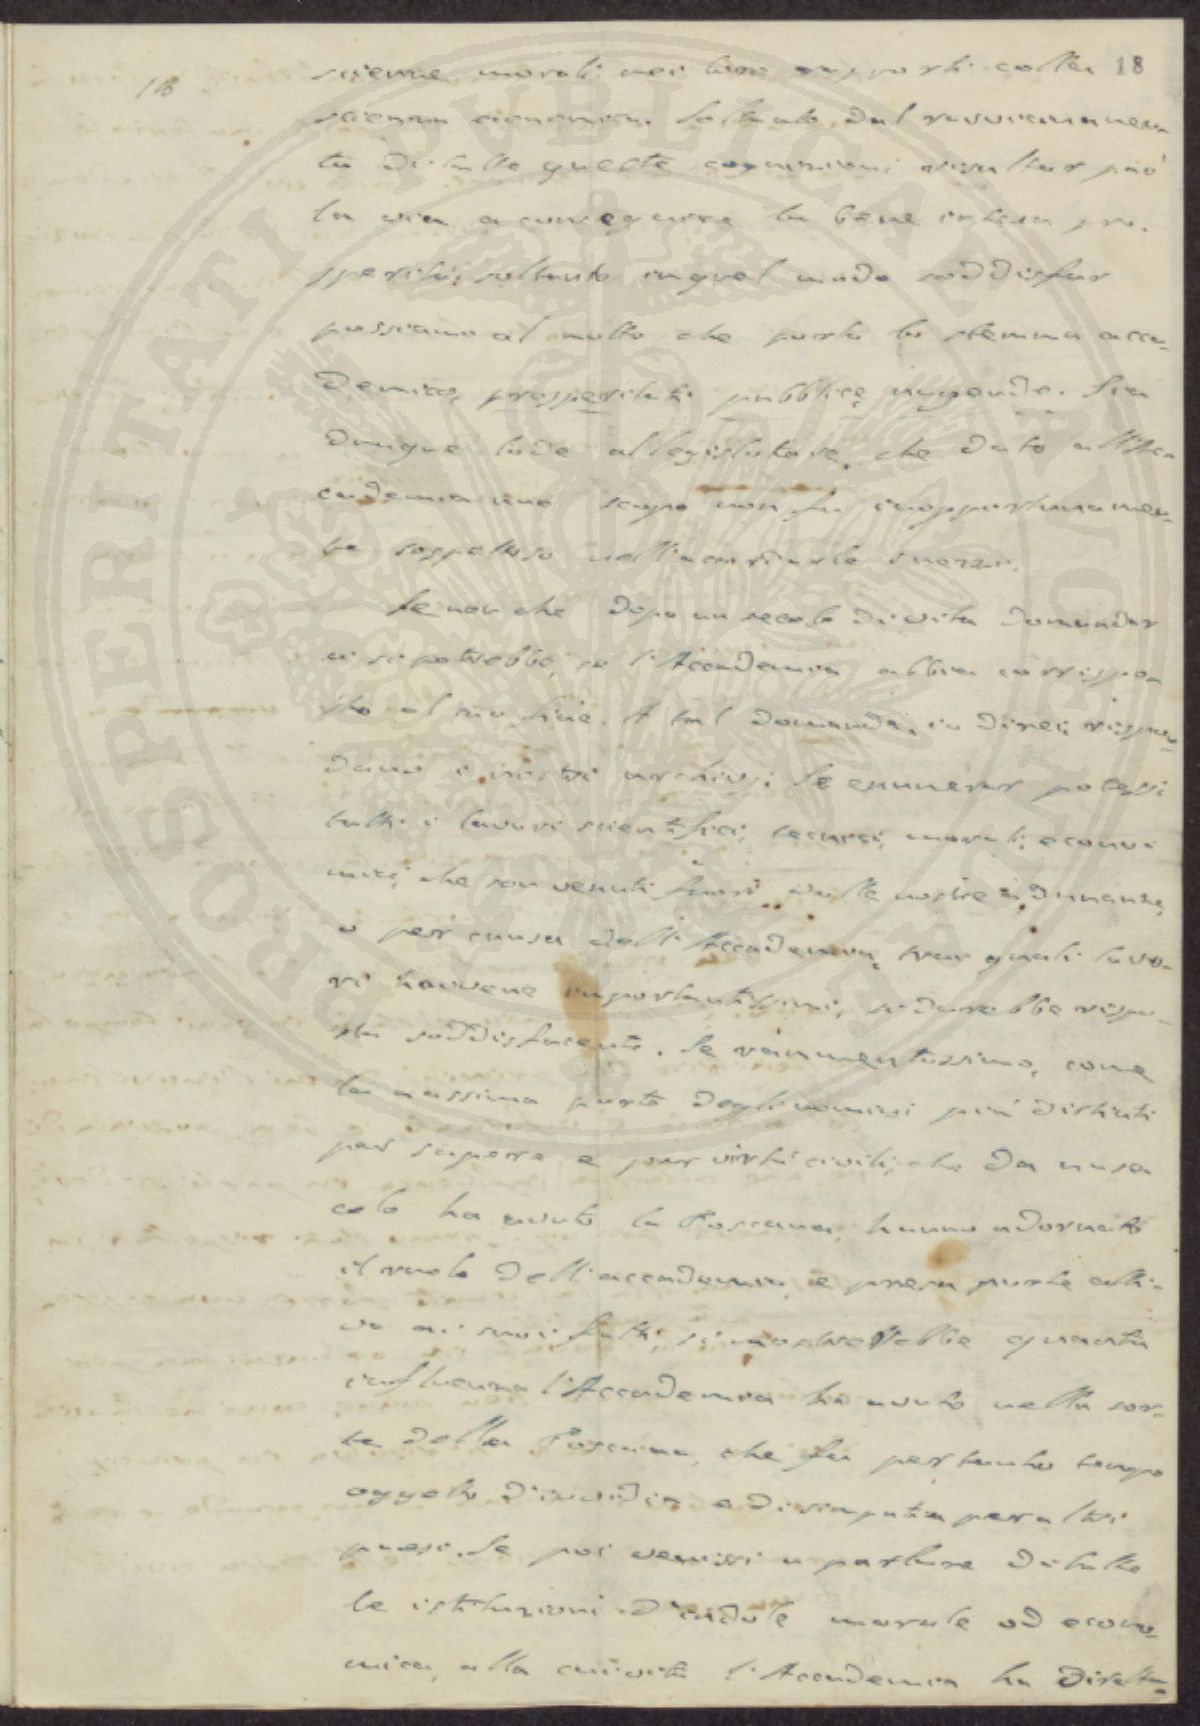 18
16
scienze morali nei loro rapporti colla
scienza economica. Soltanto dal ravvicinamen-
to di tutte queste cognizioni risultar può
la via a conseguire la bene intesa pro-
sperità; soltanto in quel modo soddisfar
possiamo al motto che porta lo stemma acca-
demico, prosperitati publicę augendę. Sia
dunque lode al legislatore, che dato all'Ac-
cademia uno scopo non fu inopportunamen-
te sospettoso nell'accordarle i mezzi.
Se non che dopo un secolo di vita domandar
ci si potrebbe, se l'Accademia abbia corrispo-
sto al suo fine. A tal domanda, io direi, rispon-
dano i nostri archivi. Se enumerar potessi
tutti i lavori scientifici, tecnici, morali, econo-
mici, che son venuti fuori dalle nostre adunanze,
o per causa dell'Accademia, tra i quali lavo-
ri havvene importantissimi, si darebbe rispo-
sta soddisfacente. Se rammentassimo, come
la massima parte degli uomini più distinti
per sapere e per virtù civili, che da un se-
colo ha avuto la Toscana, hanno adornato
il ruolo dell'accademia, e presa parte atti-
va ai suoi fatti, si mostrerebbe quanta
influenza l'Accademia ha avuto nella sor-
te della Toscana, che fu per tanto tempo
oggetto d'invidia e di simpatia per altri
paesi. Se poi venissi a parlare di tutte
le istituzioni d'indole morale od econo-
mica, alla cui vita l'Accademia ha diretta-
PROSPERITATI PUBLICAE AUGENDAE